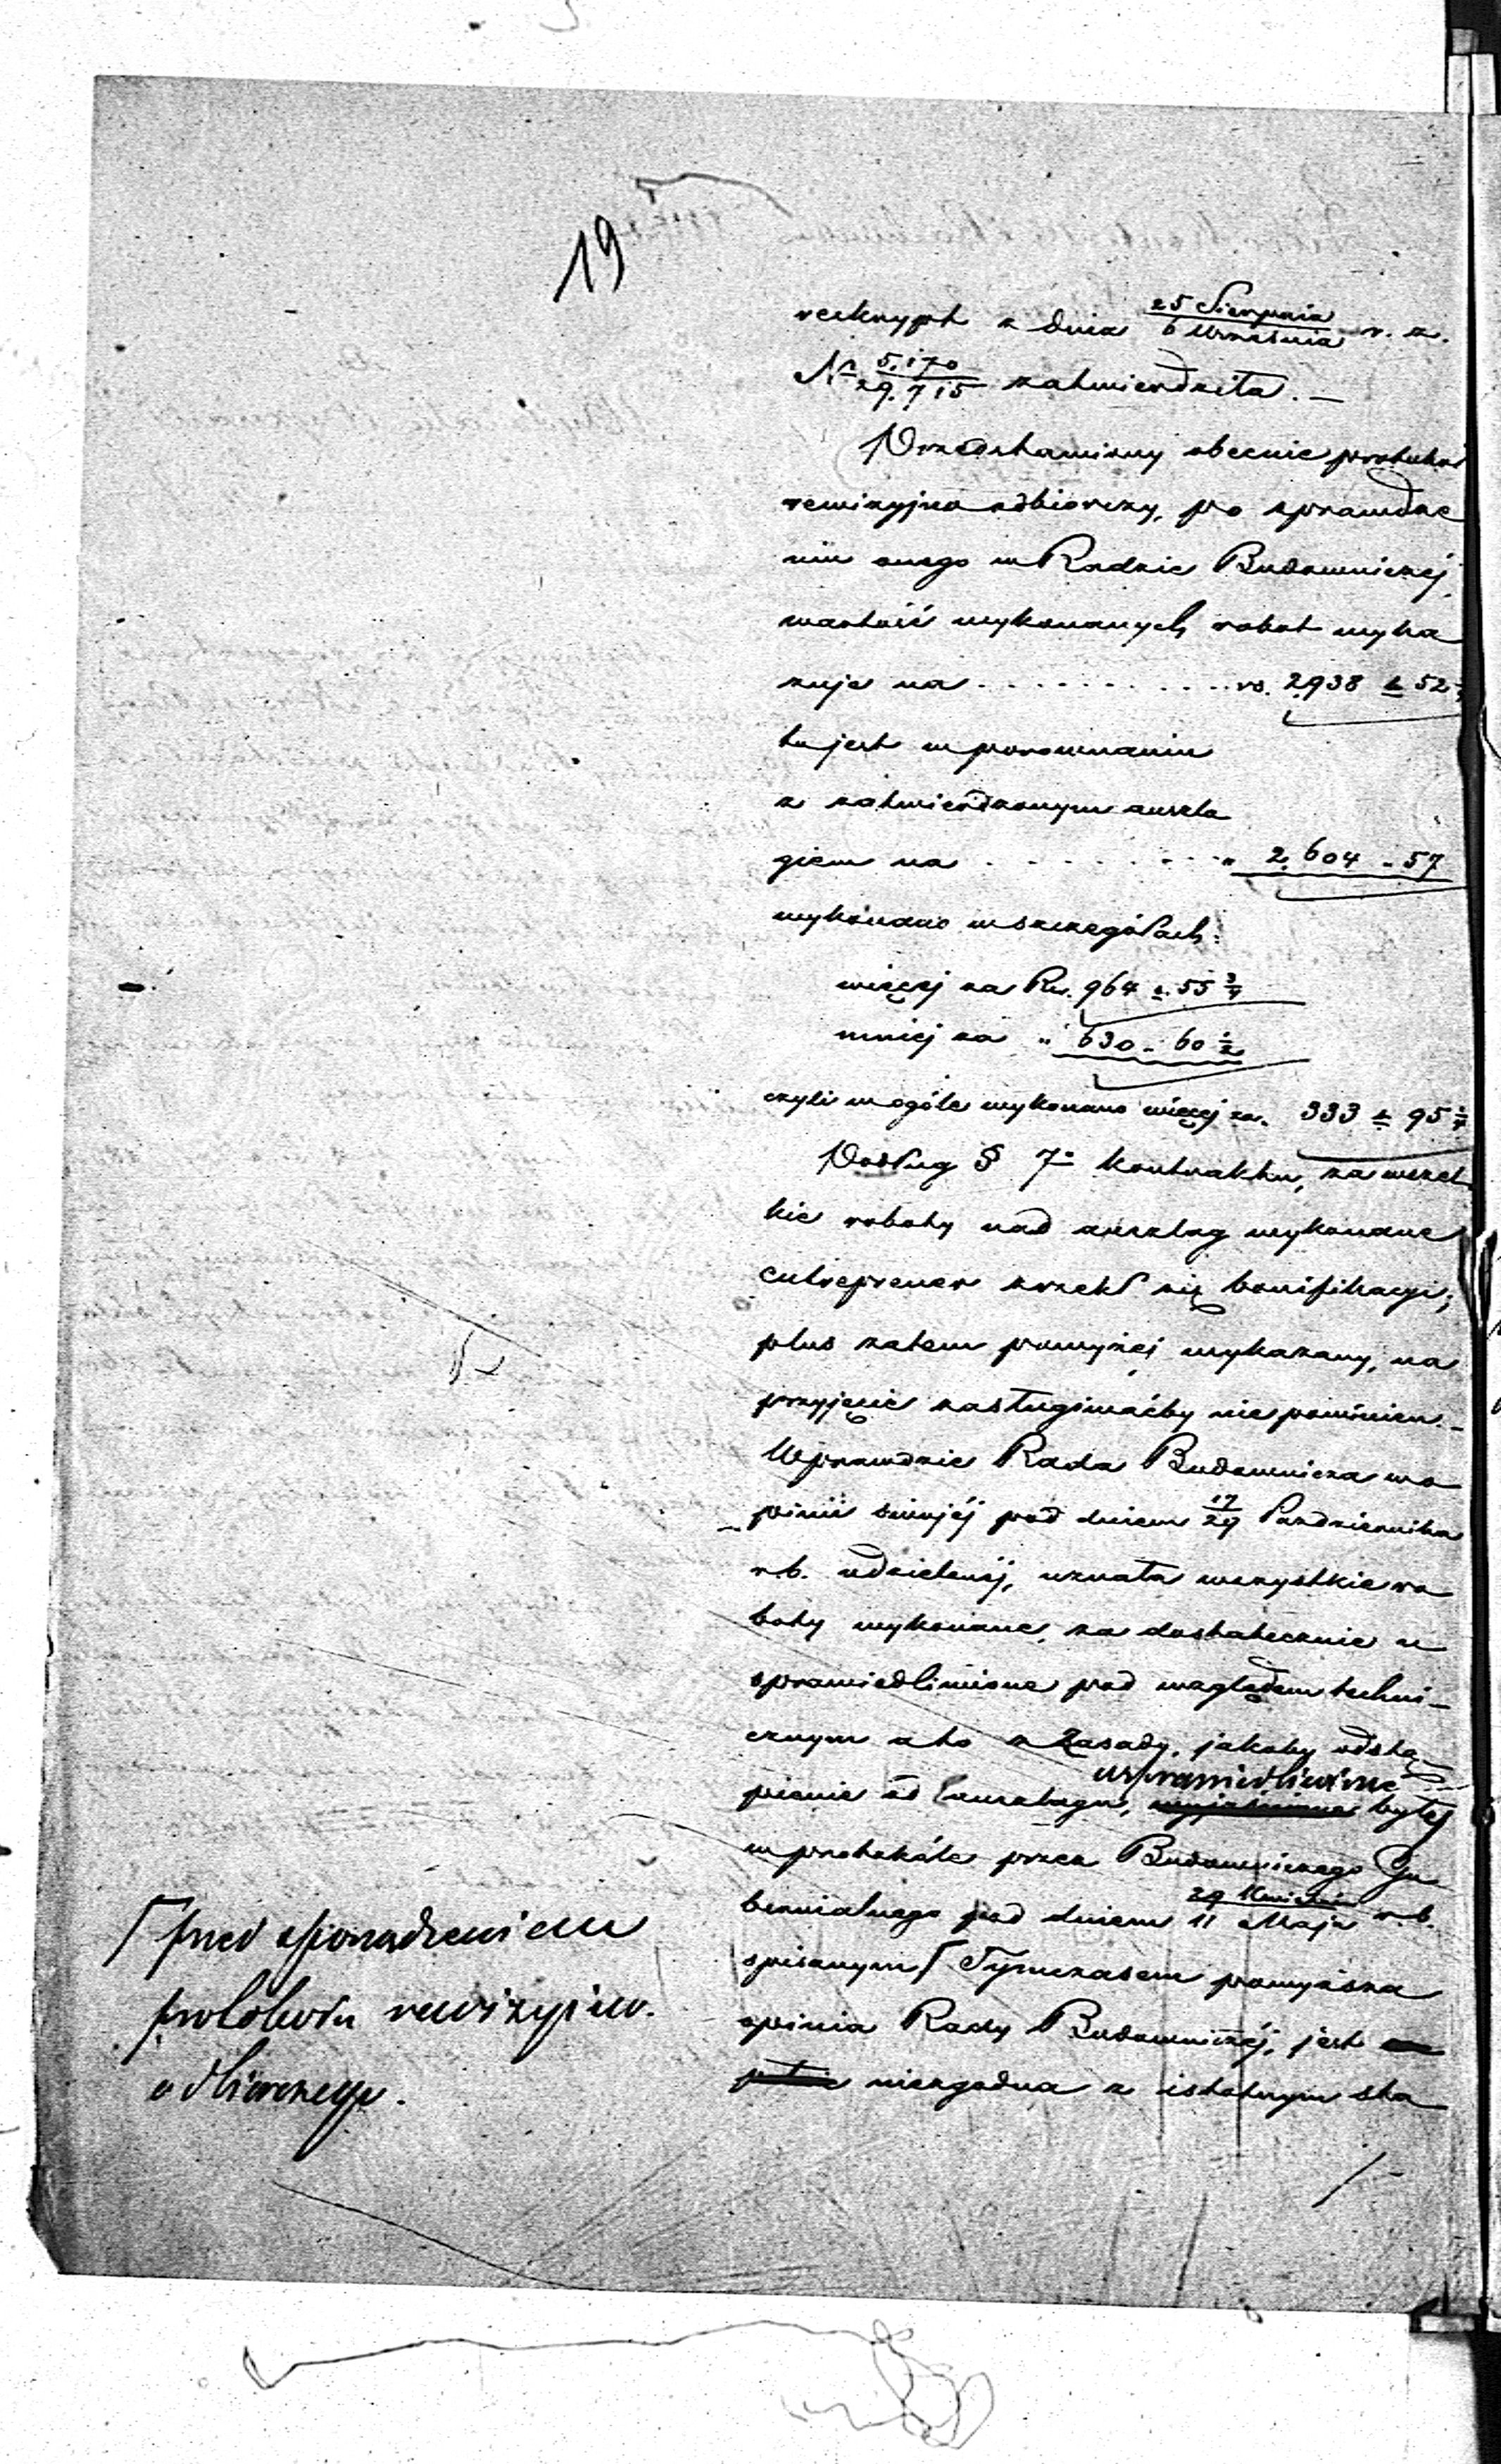 19
reskrypt z dnia 25 Sierpnia / 6 Września r. z.
N° 5,170 / 29.715 zatwierdziła. —
Przedstawiony obecnie protokół
rewizyjno odbiorczy, po sprawdze
niu onego w Radzie Budowniczéj,
wartość wykonanych robot wyka
zuje na . . . . . . . . . . rs. 2,938 k 52
to jest w porównaniu
z zatwierdzonym anszla
giem na . . . . . . . . " 2,604 - 57
wykonano w szczegółach:
więcéj za Rs. 964 k. 55 3/4
mniej za " 630 - 60 1/2
czyli w ogóle wykonano więcéj za. 333 k 95 1/4
Podług § 7° kontraktu, za wszel
kie roboty nad anszlag wykonane
entreprener zrzekł się bonifikacyi;
plus zatem powyżéj wykazany, na
przyjęcie zasługiwaćby nie powinien. —
Wprawdzie Rada Budownicza w o
pinii swojéj pod dniem 17/29 Października
r. b. udzielonéj, uznała wszystkie ro
boty wykonane, za dostatecznie u
sprawiedliwione pod względem techni-
cznym a to z Zasady, jakoby odstą
pienie od anszlagu, usprawiedliwione było
w protokóle przez Budowniczego Gu
bernialnego pod dniem 29 Kwietnia / 11 Maja r. b.
spisanym Γ Tymczasem powyższa
opinia Rady Budowniczéj, jest
niezgodna z istotnym sta
Γ przed sporządzeniem
protokółu rewizyjno.
odbiorczego.